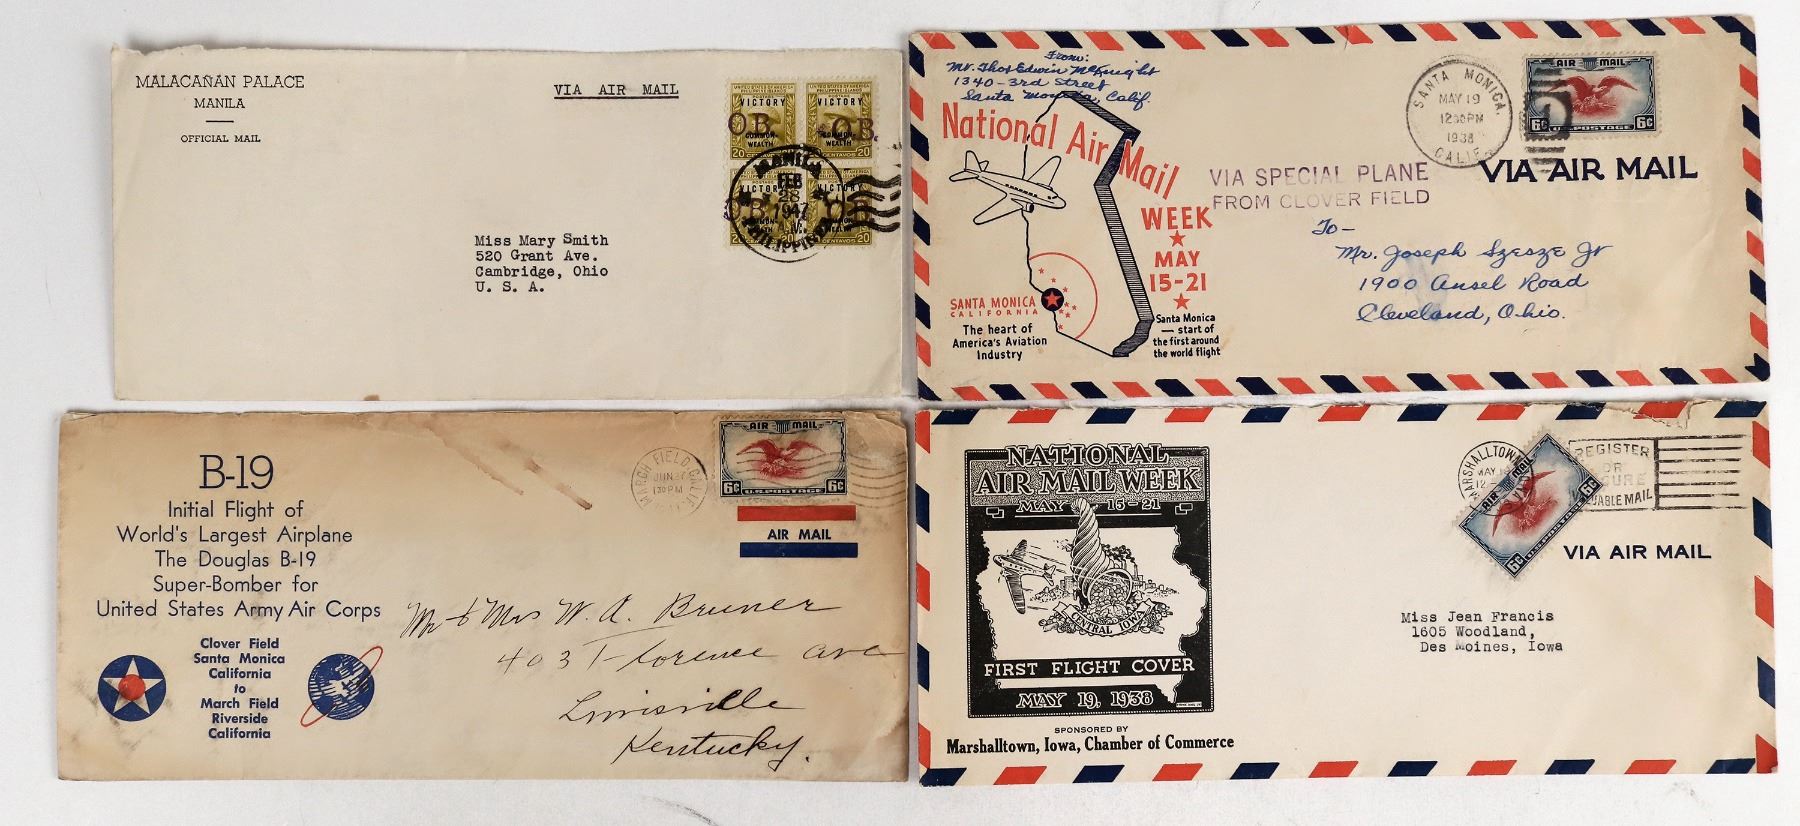 MALACAÑAN PALACE
MANILA
OFFICIAL MAIL
VIA AIR MAIL
UNITED STATES OF AMERICA
PHILIPPINE ISLANDS
VICTORY
COMMON-
WEALTH
20 CENTAVOS 20
O.B.
VICTORY
COMMON-
WEALTH
CENTAVOS 20
O.B.
VICTORY
VICTORY
MANILA
FEB
28
1947
PHILIPPINES
Miss Mary Smith
520 Grant Ave.
Cambridge, Ohio
U. S. A.
From:
Mr. Thos Edwin McKnight
1340-3rd Street
Santa Monica, Calif.
National Air Mail
WEEK
MAY
15-21
SANTA MONICA
CALIFORNIA
The heart of
America's Aviation
Industry
Santa Monica
— start of
the first around
the world flight
SANTA MONICA,
MAY 19
12 30 PM
1938
CALIF.
AIR MAIL
6¢ U.S. POSTAGE 6¢
VIA AIR MAIL
VIA SPECIAL PLANE
FROM CLOVER FIELD
To-
Mr. Joseph Szesze Jr
1900 Ansel Road
Cleveland, Ohio.
B-19
Initial Flight of
World's Largest Airplane
The Douglas B-19
Super-Bomber for
United States Army Air Corps
Clover Field
Santa Monica
California
to
March Field
Riverside
California
MARCH FIELD CALIF
JUN 27
1 30 PM
AIR MAIL
6¢ U.S. POSTAGE 6¢
AIR MAIL
Mr & Mrs W. A. Bruner
403 Florence Ave
Louisville
Kentucky.
NATIONAL
AIR MAIL WEEK
MAY 15-21
CENTRAL IOWA
FIRST FLIGHT COVER
MAY 19, 1938
SPONSORED BY
Marshalltown, Iowa, Chamber of Commerce
MARSHALLTOWN
MAY 19
AIR MAIL
6¢ U.S. POSTAGE 6¢
REGISTER
OR
VALUABLE MAIL
VIA AIR MAIL
Miss Jean Francis
1605 Woodland,
Des Moines, Iowa